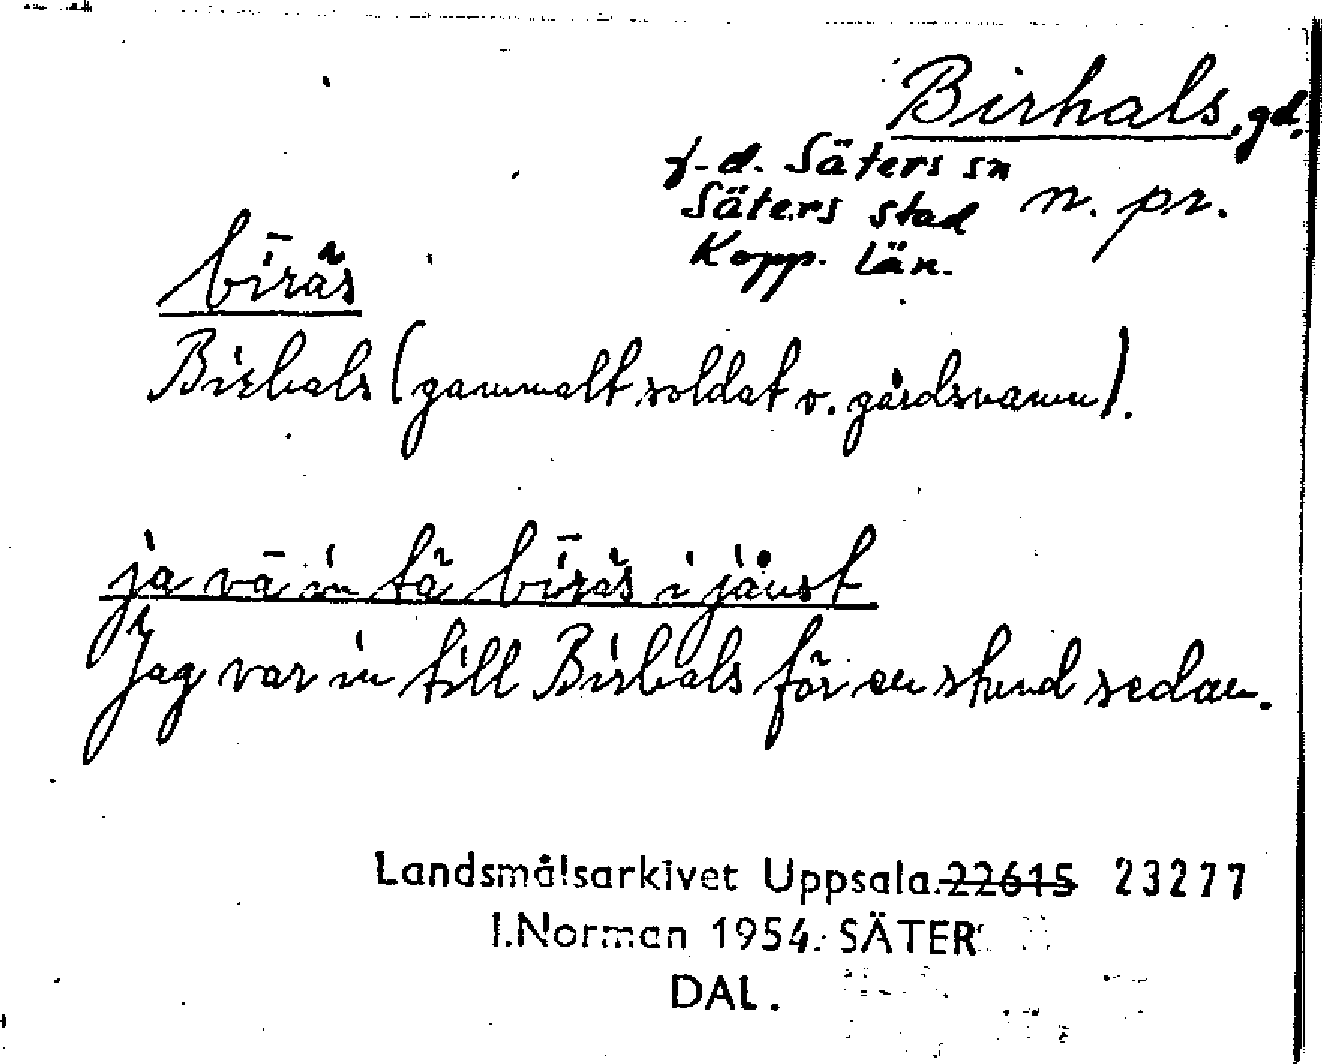 Birhals, gd.
f.d. Säters sn
Säters stad n. pr.
Kopp. län.
bīräs
Birhals (gammalt soldat o. gårdsnamn).
ja vā in tä bīräs i jåust
Jag var in till Birhals för en stund sedan.
Landsmålsarkivet Uppsala. 22615 23277
I. Norman 1954. SÄTER
DAL.